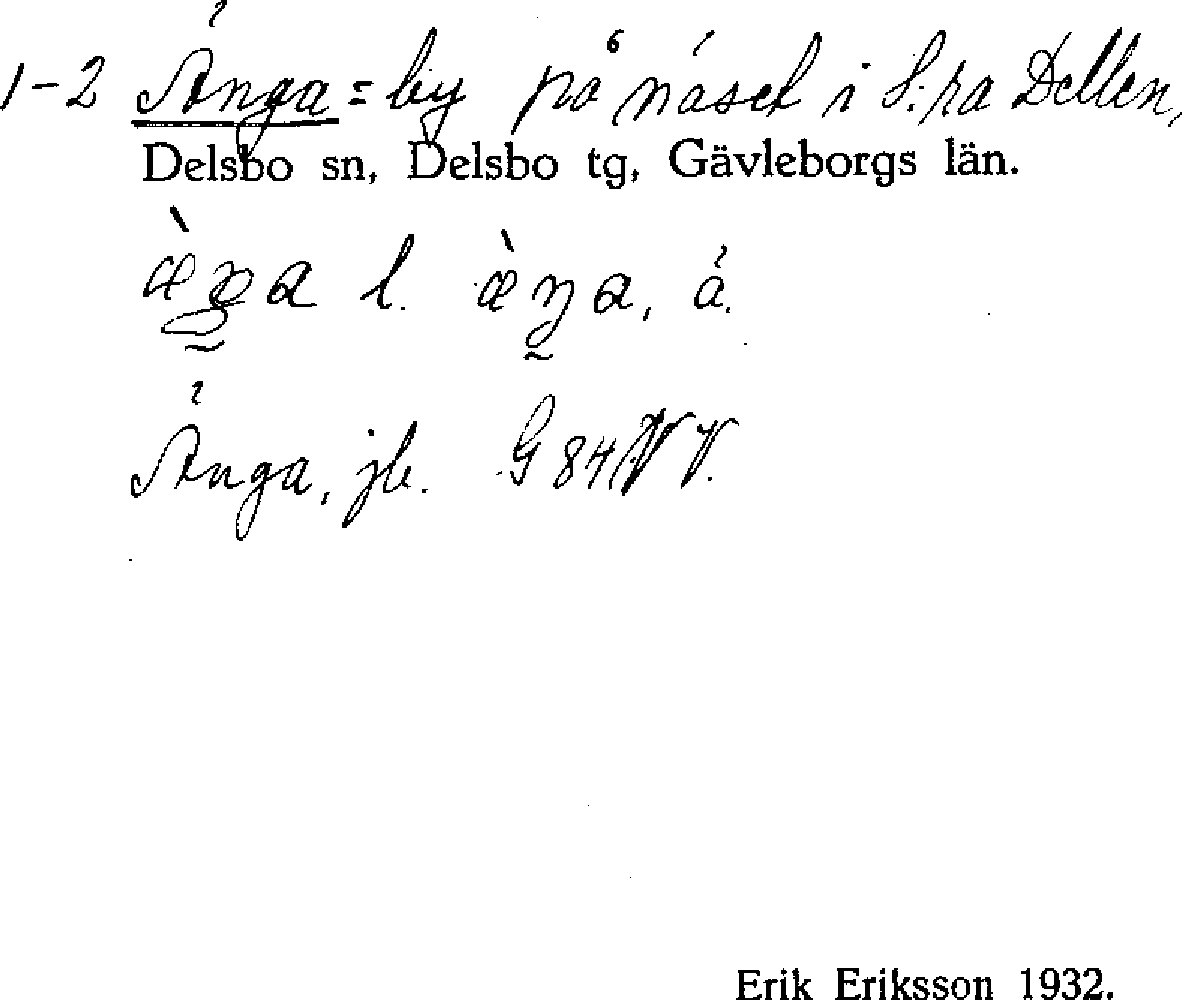 1-2 Änga = by på näset i S:ra Dellen,
Delsbo sn, Delsbo tg, Gävleborgs län.
l. ä.
Änga, jb. G 84 NV.
Erik Eriksson 1932.